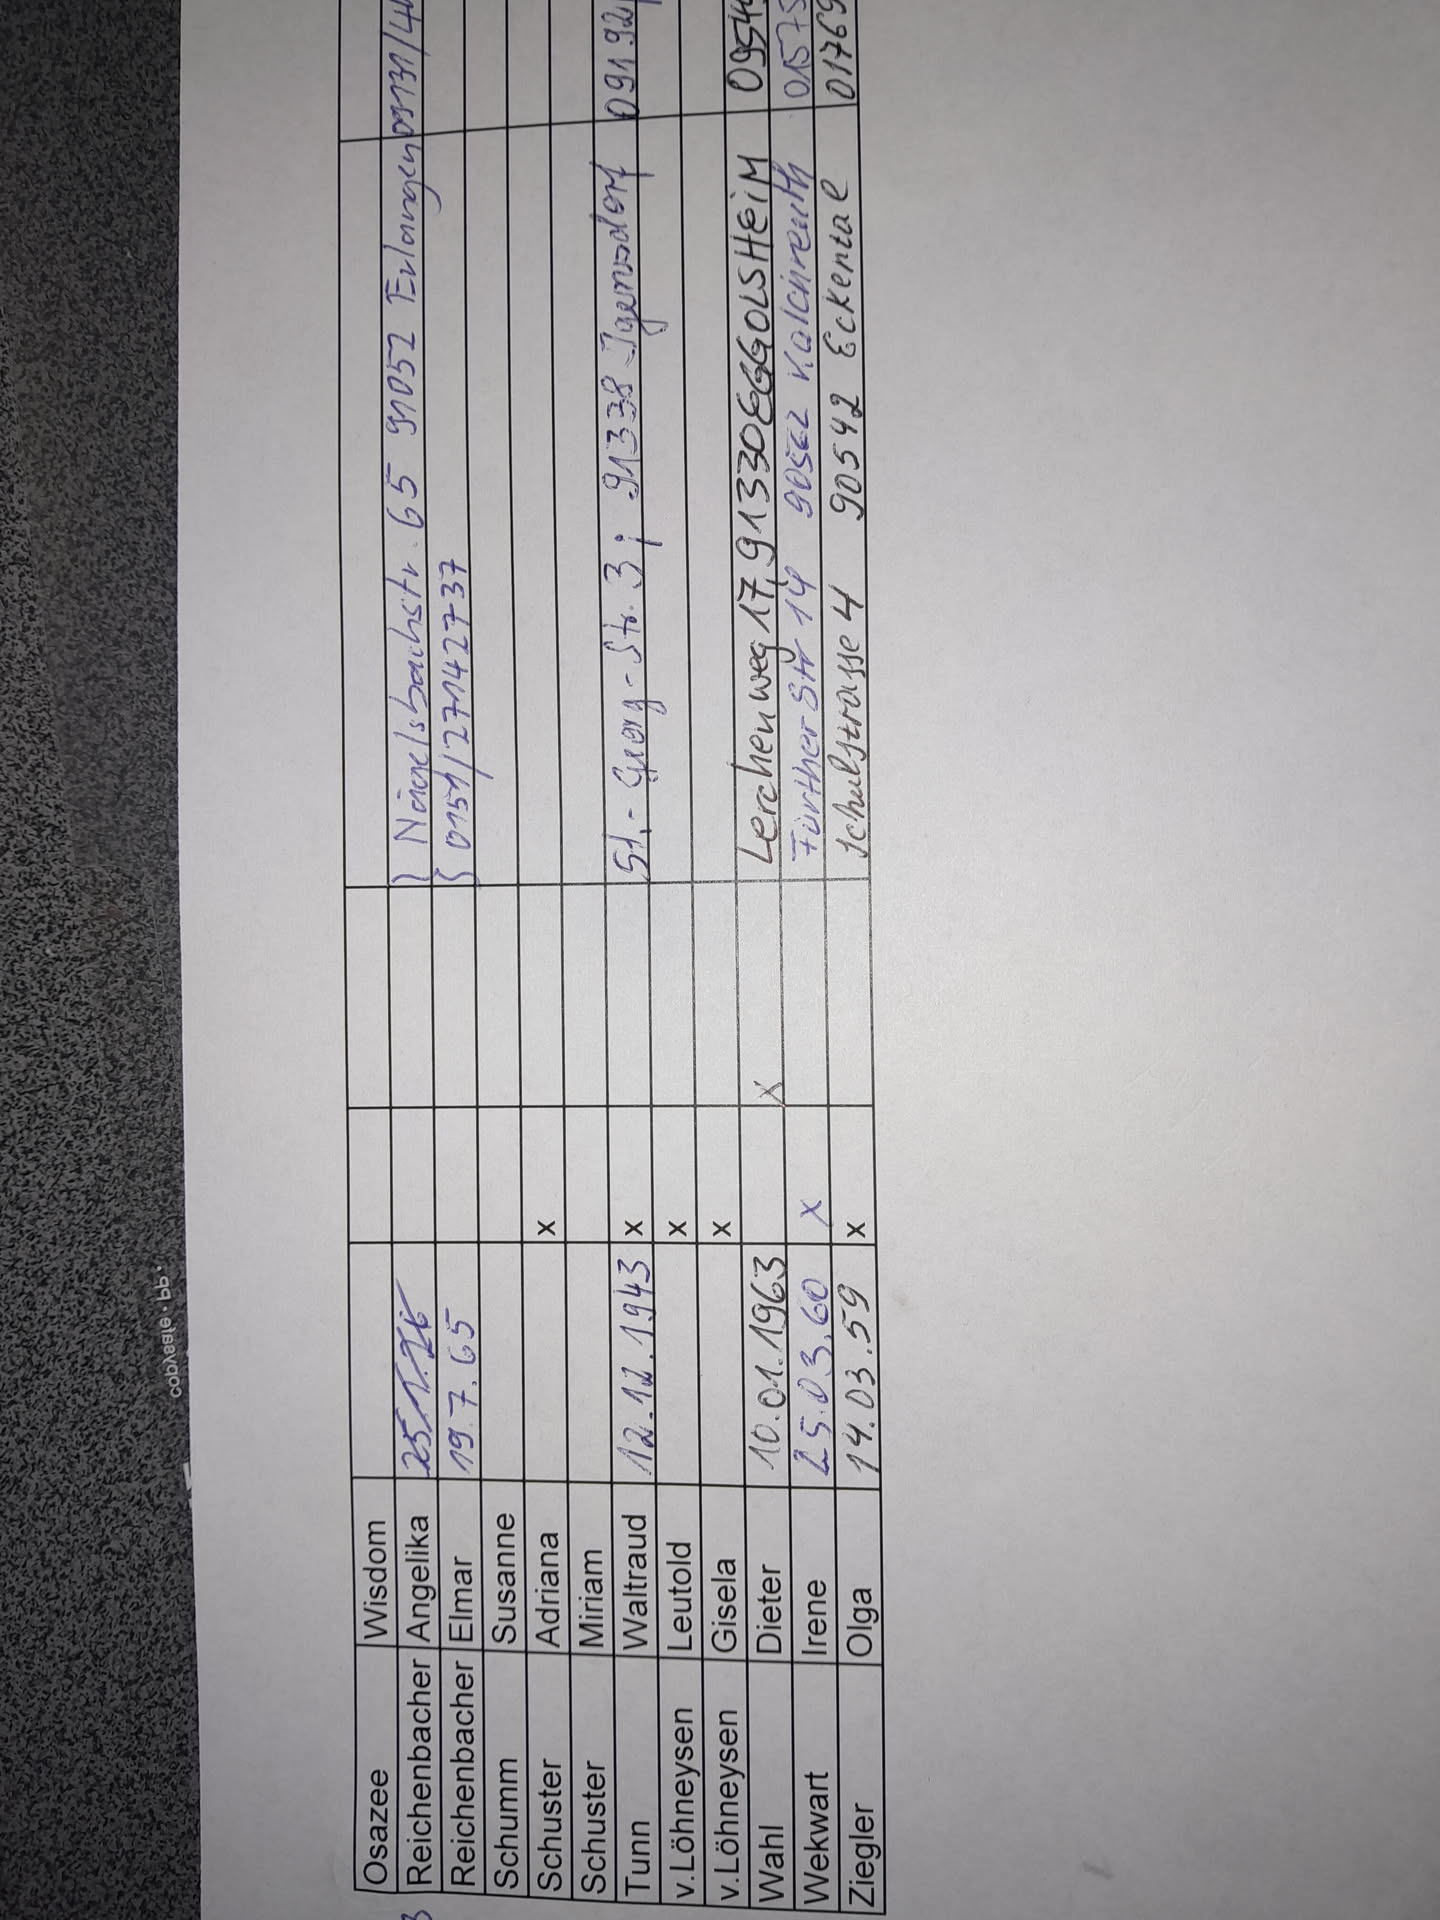 Osazee Wisdom
Reichenbacher Angelika 25.1.26 } Nägelsbachstr. 65 91052 Erlangen 09131/4
Reichenbacher Elmar 19.7.65 { 0151/27142737
Schumm Susanne
Schuster Adriana x
Schuster Miriam
Tunn Waltraud 12.12.1943 x St.-Georg-Str. 3; 91338 Igensdorf 09192
v.Löhneysen Leutold x
v.Löhneysen Gisela x
Wahl Dieter 10.01.1963 x Lerchenweg 17, 91330 EGGOLSHEIM 0954
Wekwart Irene 25.03.60 x Fürther Str 14 90562 Kalchreuth 01575
Ziegler Olga 14.03.59 x Schulstrasse 4 90542 Eckental 01769